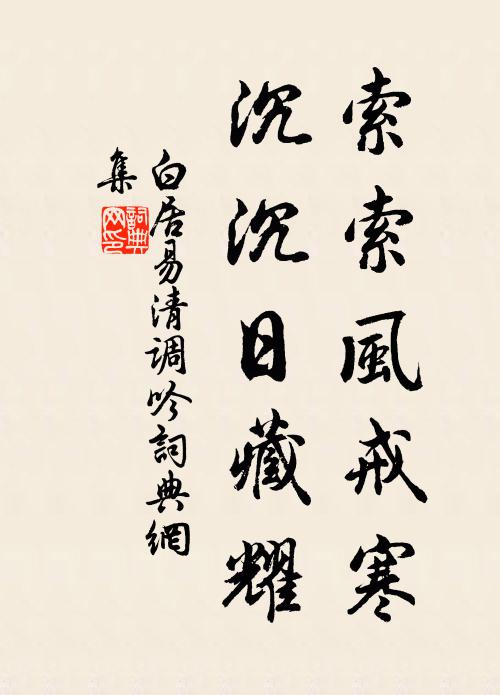 索索風戒寒
沉沉日藏耀
白居易清調吟詞典網
集
詞典网印